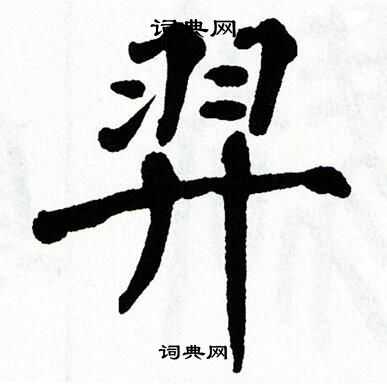 词典网
羿
词典网